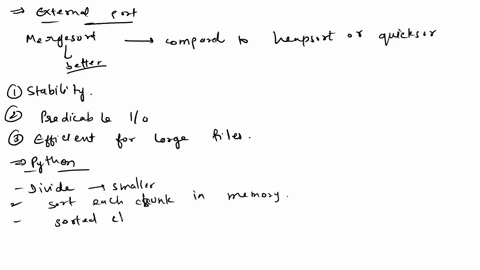 ⇒ External sort
Mergesort → compard to heapsort or quicksor
better
① Stability.
② Predicable I/o
③ Efficient for large files.
⇒ Python
- Divide → smaller
- sort each chunk in memory.
- sorted cl